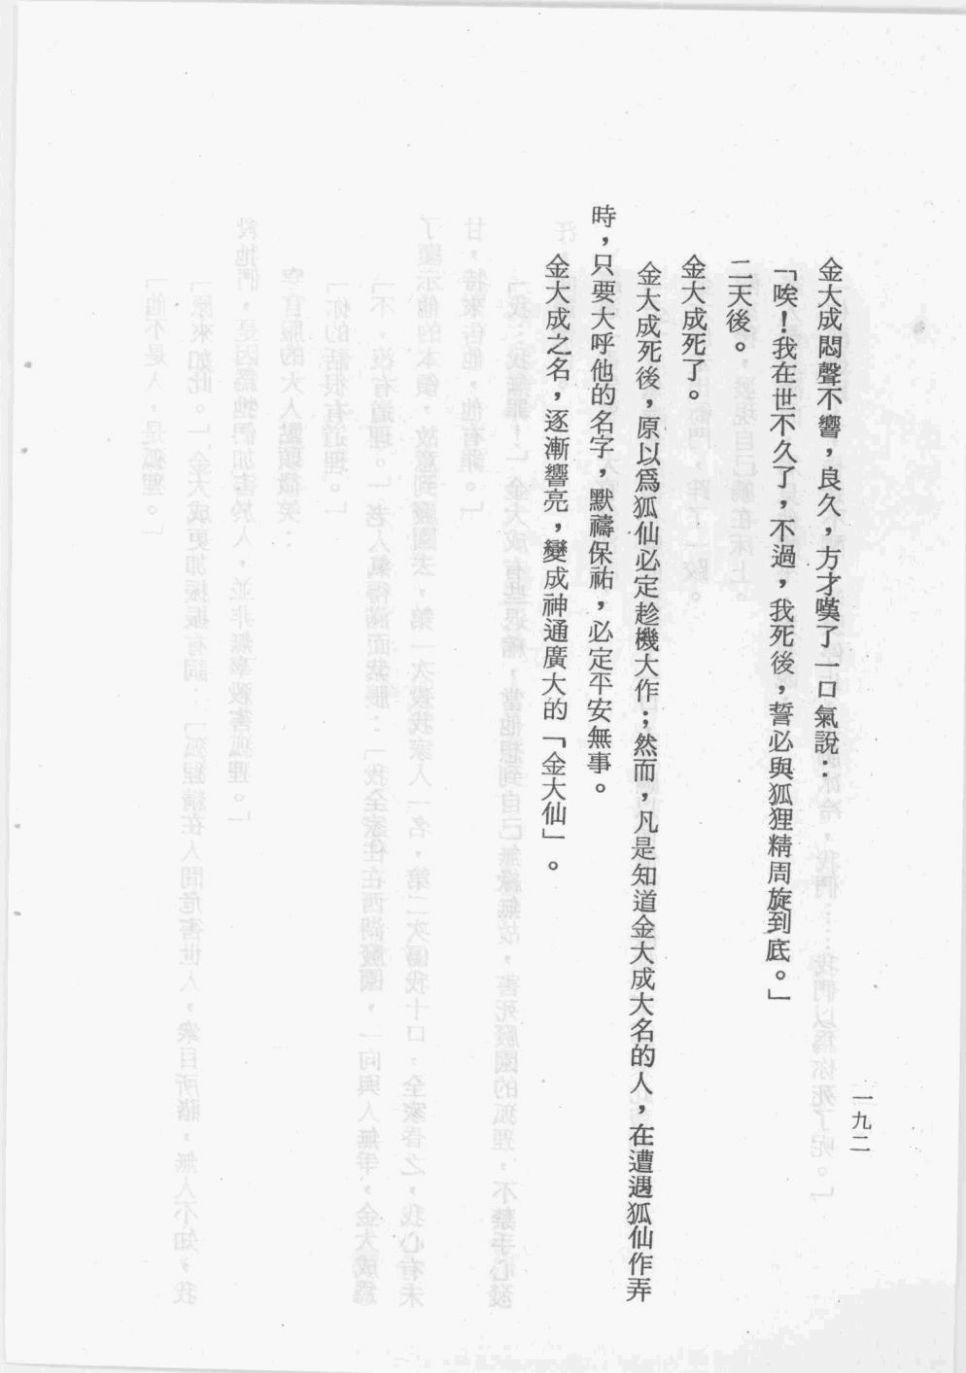 一九二
金大成悶聲不響，良久，方才嘆了一口氣說：
「唉！我在世不久了，不過，我死後，誓必與狐狸精周旋到底。」
二天後。
金大成死了。
金大成死後，原以爲狐仙必定趁機大作；然而，凡是知道金大成大名的人，在遭遇狐仙作弄
時，只要大呼他的名字，默禱保祐，必定平安無事。
金大成之名，逐漸響亮，變成神通廣大的「金大仙」。